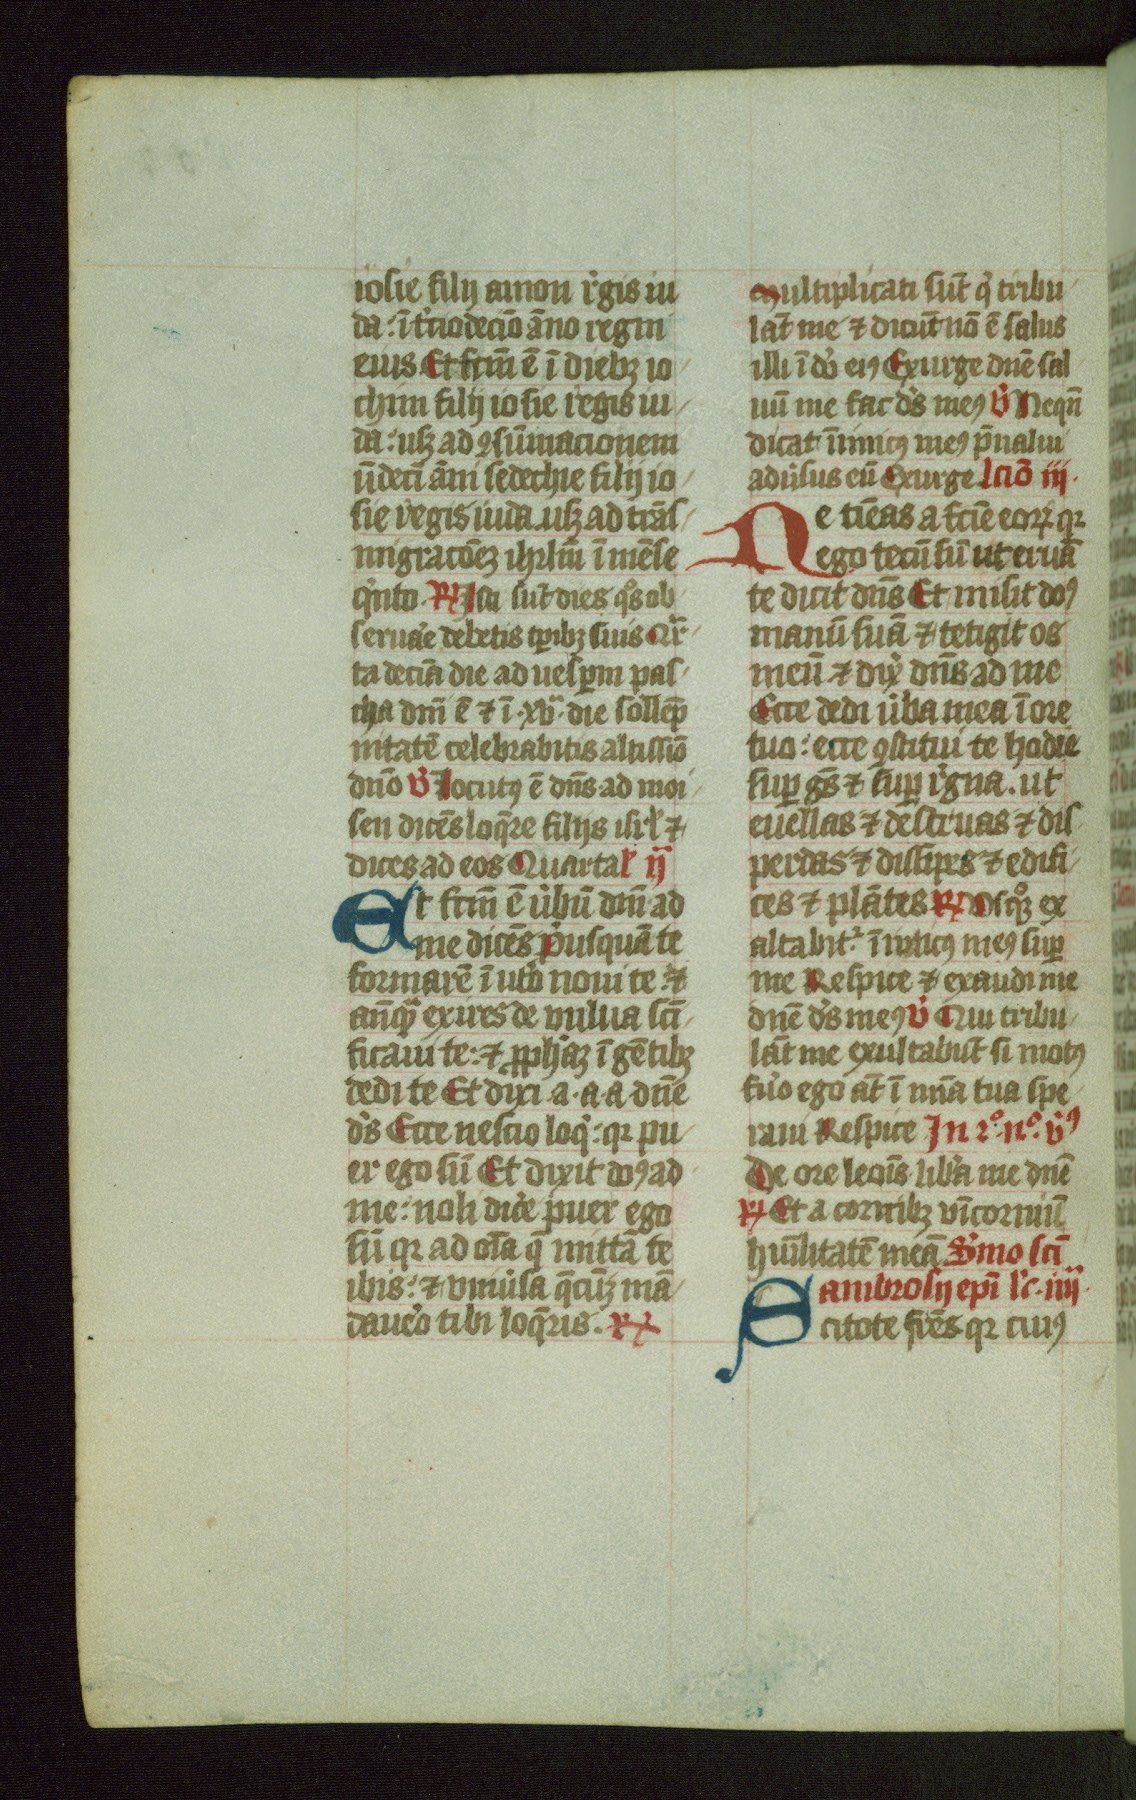 iosie filij amon r̾gis iu
da : ī t̾ciodecīo āno regni
eius. Et fc̄m ē ī diebꝫ io
chim filij iosie r̾egis iu
da : usqꝫ ad ꝯsūmacionem
ūdeci āni sedechie filij io
sie r̾egis iuda usqꝫ ad trās
migracōeꝫ ihrlīm ī mēse
qͥnto. ℟ Isti sūt dies qͦs ob
seruar̾e debetis tꝑibꝫ suis Qͣr
ta decīa die ad uesꝑm pas
cha dn̄i ē ⁊ ī ·xvͣ· die sollēp
nitatē celebrabitis altissīo
dn̄o V̾ Locutꝰ ē dn̄s ad moi
sen dicēs loq̄re filijs isrl̄ ⁊
dices ad eos Quarta l̾ ijͣ
Et fc̄m ē u̾bū dn̄i ad
me dicēs p̾usquā te
formarē ī ut̾o noui te : ⁊
an̄qͣ exires de vulua sc̄i
ficaui te : ⁊ ꝓph̄aꝫ ī gētibꝫ
dedi te Et dixi a · a · a dn̄e
ds̾ Ecce nescio loqͥ : qꝛ pu
er ego sū Et dixit dn̄ꝰ ad
me : noli dic̾e puer ego
sū qꝛ ad oīa q̄ mittā te
ibis : ⁊ vniu̾sa q̄cūqꝫ mā
dau̾o tibi loq̄ris. ℟
multiplicati sūt qͥ tribu
lāt me ⁊ dicūt nō ē salus
illi ī do̾ eiꝰ Exurge dn̄e sal
uū me fac ds̾ meꝰ V̾ Neqn̄
dicat īimicꝰ meꝰ p̄ualui
adu̾sus eū Exurge. lcīo iij·
Ne tīeas a fcīe eoꝝ qꝛ
ego tecū sū ut eruā
te dicit dn̄s Et misit dn̄ꝰ
manū suā ⁊ tetigit os
meū ⁊ dix̾ dn̄s ad me
Ecce dedi u̾ba mea ī ore
tuo : ecce ꝯstitui te hodie
suꝑ gēs ⁊ suꝑ r̾gna. ut
euellas ⁊ destruas ⁊ dis
perdas ⁊ dissipes ⁊ edifi
ces ⁊ plātes ℟ Usqͦꝫ ex
altabit̾ īimicus meꝰ suꝑ
me Respice ⁊ exaudi me
dn̄e ds̾ meꝰ V̾ Qui tribu
lāt me exultabūt si motꝰ
fu̾o ego āt ī mīa tua spe
raui Respice In 2ͦ· nͦ· v̾ꝰ
De ore leoīs lib̾a me dn̄e
℟ Et a cornibꝫ vīcorniū
hūilitatē meā S̾mo sc̄i
ambrosij ep̄i lc̾· iiijͣ·
Scitote fr̄es qꝛ cuiꝰ